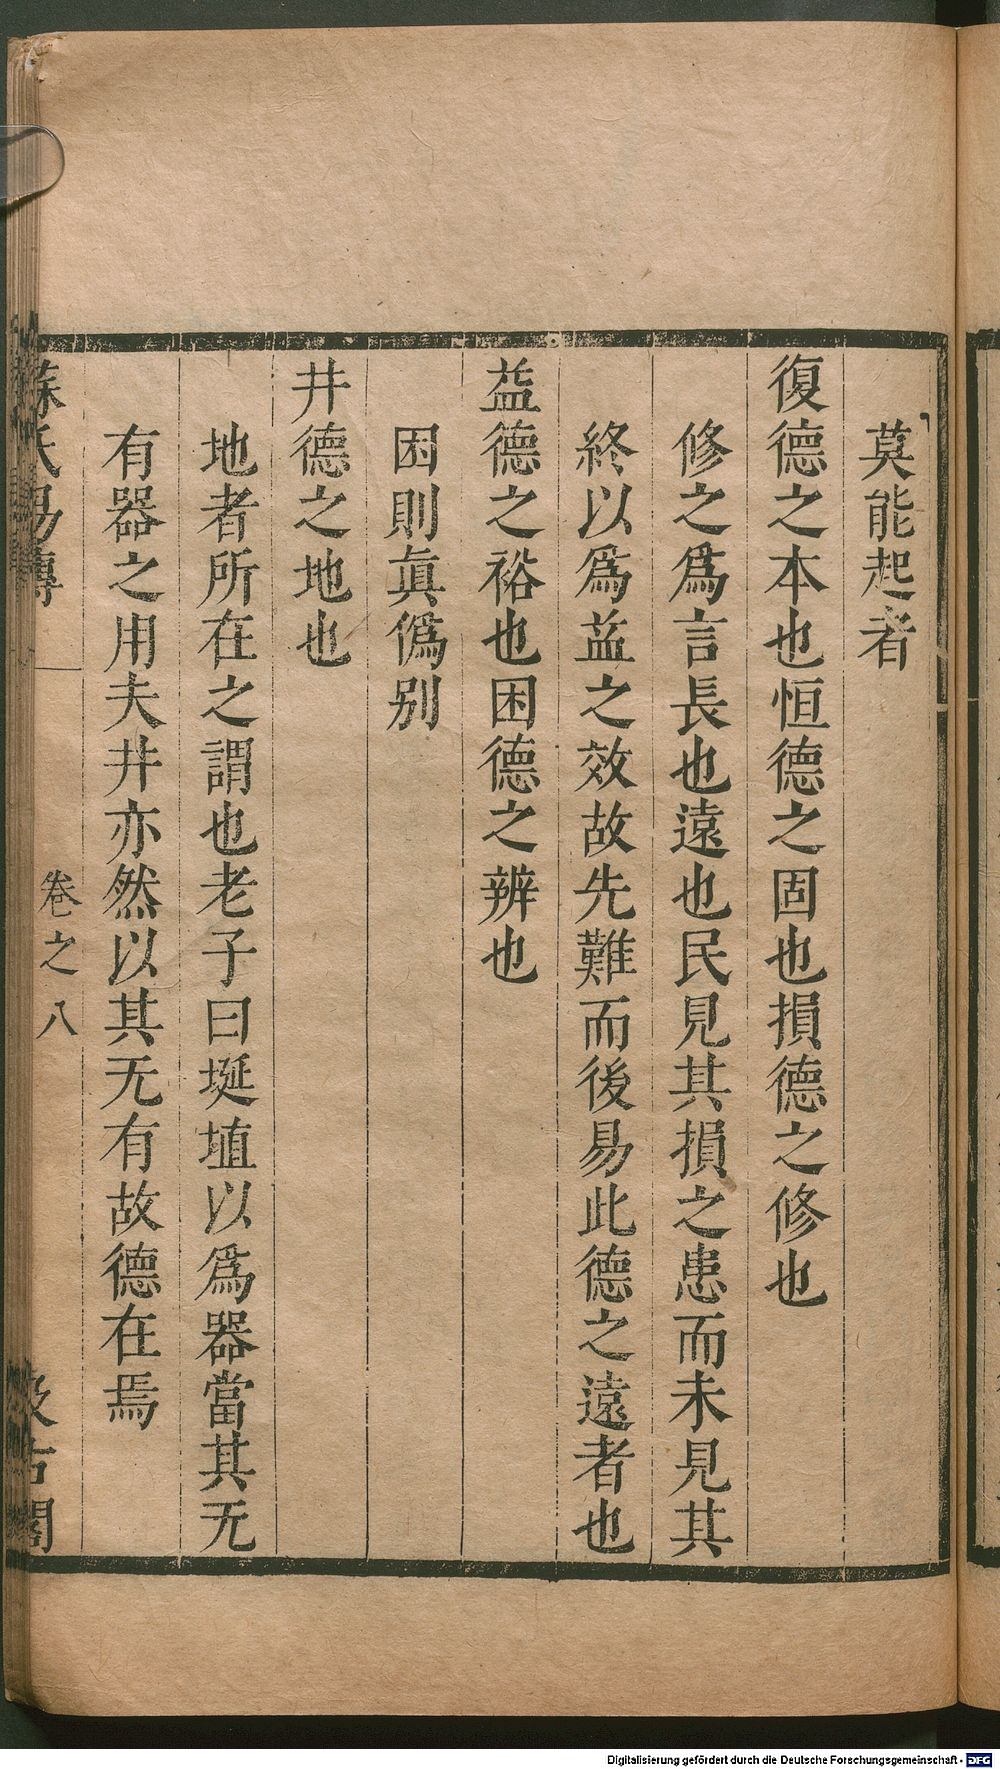 莫能起者
復德之本也恒德之固也損德之修也
修之爲言長也遠也民見其損之患而未見其
終以爲益之效故先難而後易此德之遠者也
益德之裕也困德之辨也
困則眞僞别
井德之地也
地者所在之謂也老子曰埏埴以爲器當其无
有器之用夫井亦然以其无有故德在焉
蘇氏易傳
卷之八
汲古閣
Digitalisierung gefördert durch die Deutsche Forschungsgemeinschaft - DFG